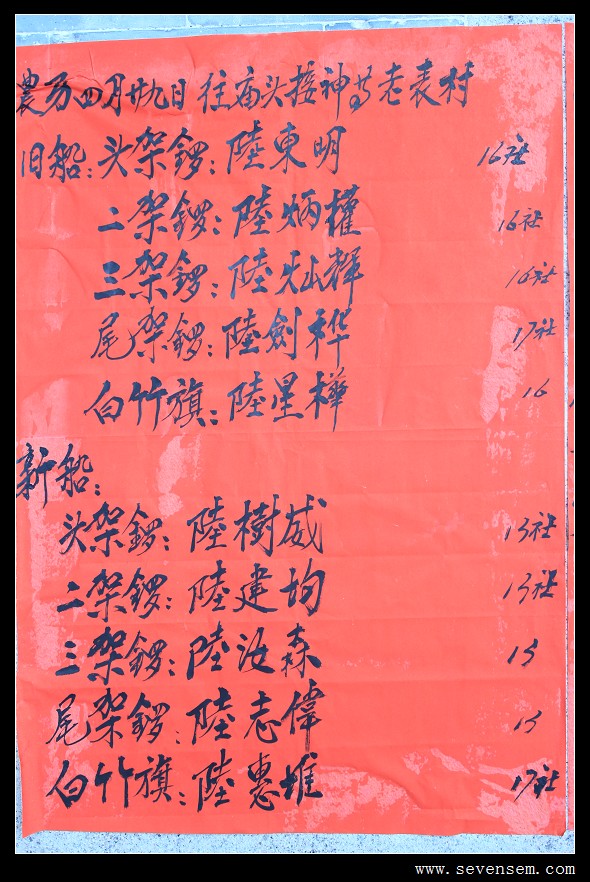 農历四月廿九日往庙头接神等老表村
旧船：头架鑼：陸東明 16社
二架鑼：陸炳權 16社
三架鑼：陸灿輝 16社
尾架鑼：陸劍桦 17社
白竹旗：陸星樺 16
新船：
头架鑼：陸樹威 15社
二架鑼：陸建均 15社
三架鑼：陸汝森 15
尾架鑼：陸志偉 15
白竹旗：陸惠堆 17社
www.sevensem.com